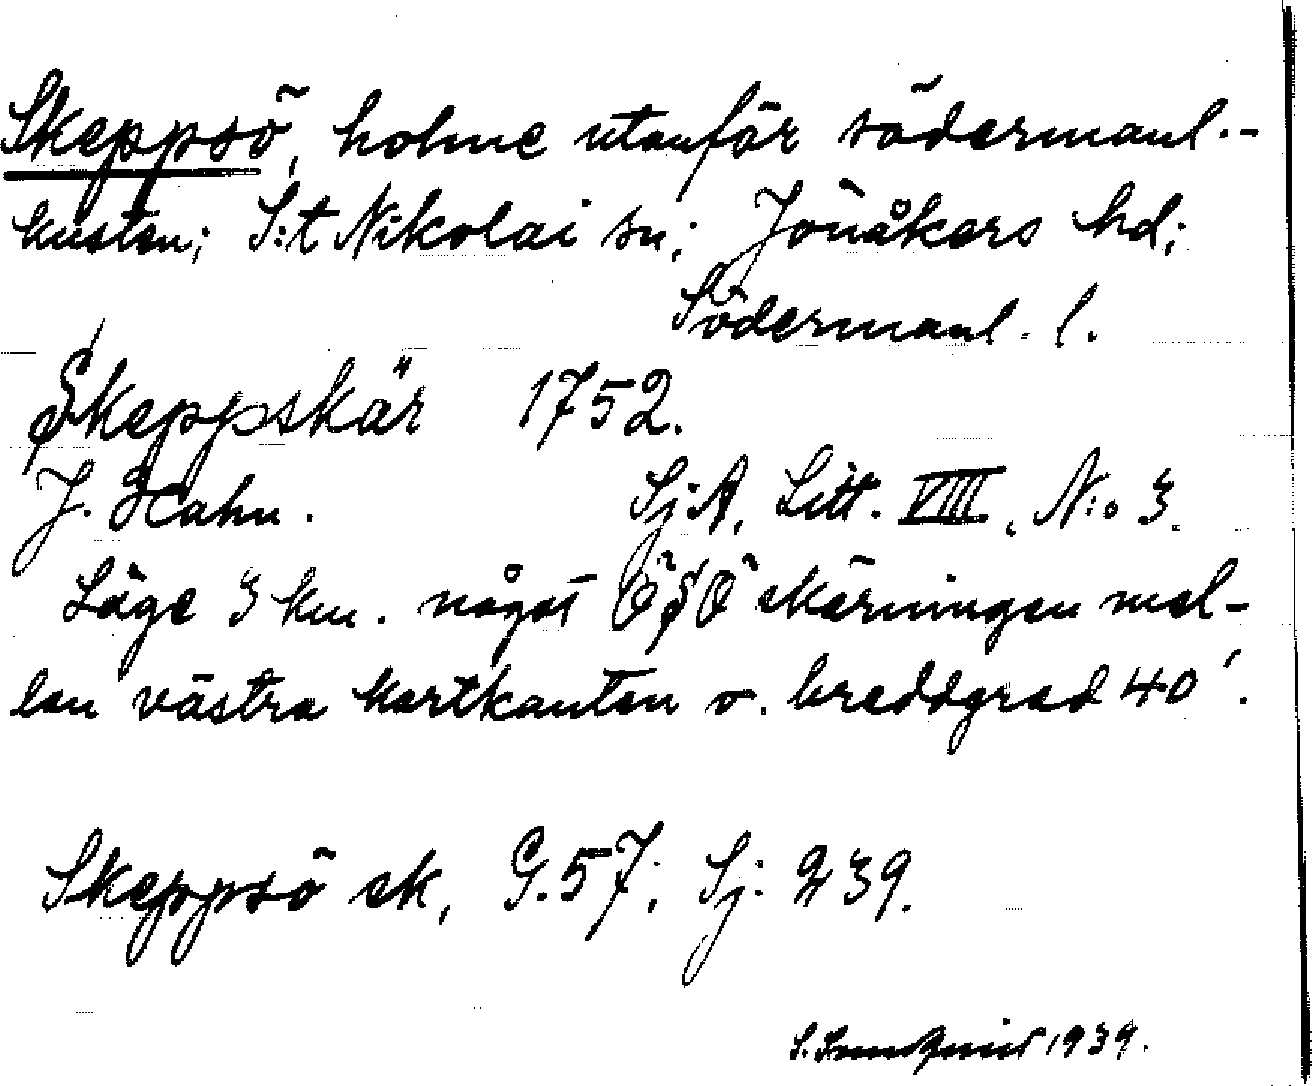 Skeppsö, holme utanför södermanl.-
kusten; S:t Nikolai sn; Jönåkers hd;
Södermanl. l.
Skeppskär 1752.
J. Hahn. Sj.A, Litt. VIII, N:o 3.
Läge 3 km. något ÖSÖ skärningen mel-
lan västra kartkanten o. breddgrad 40'.
Skeppsö sk, G.57; Sj. 239.
S. 1939.